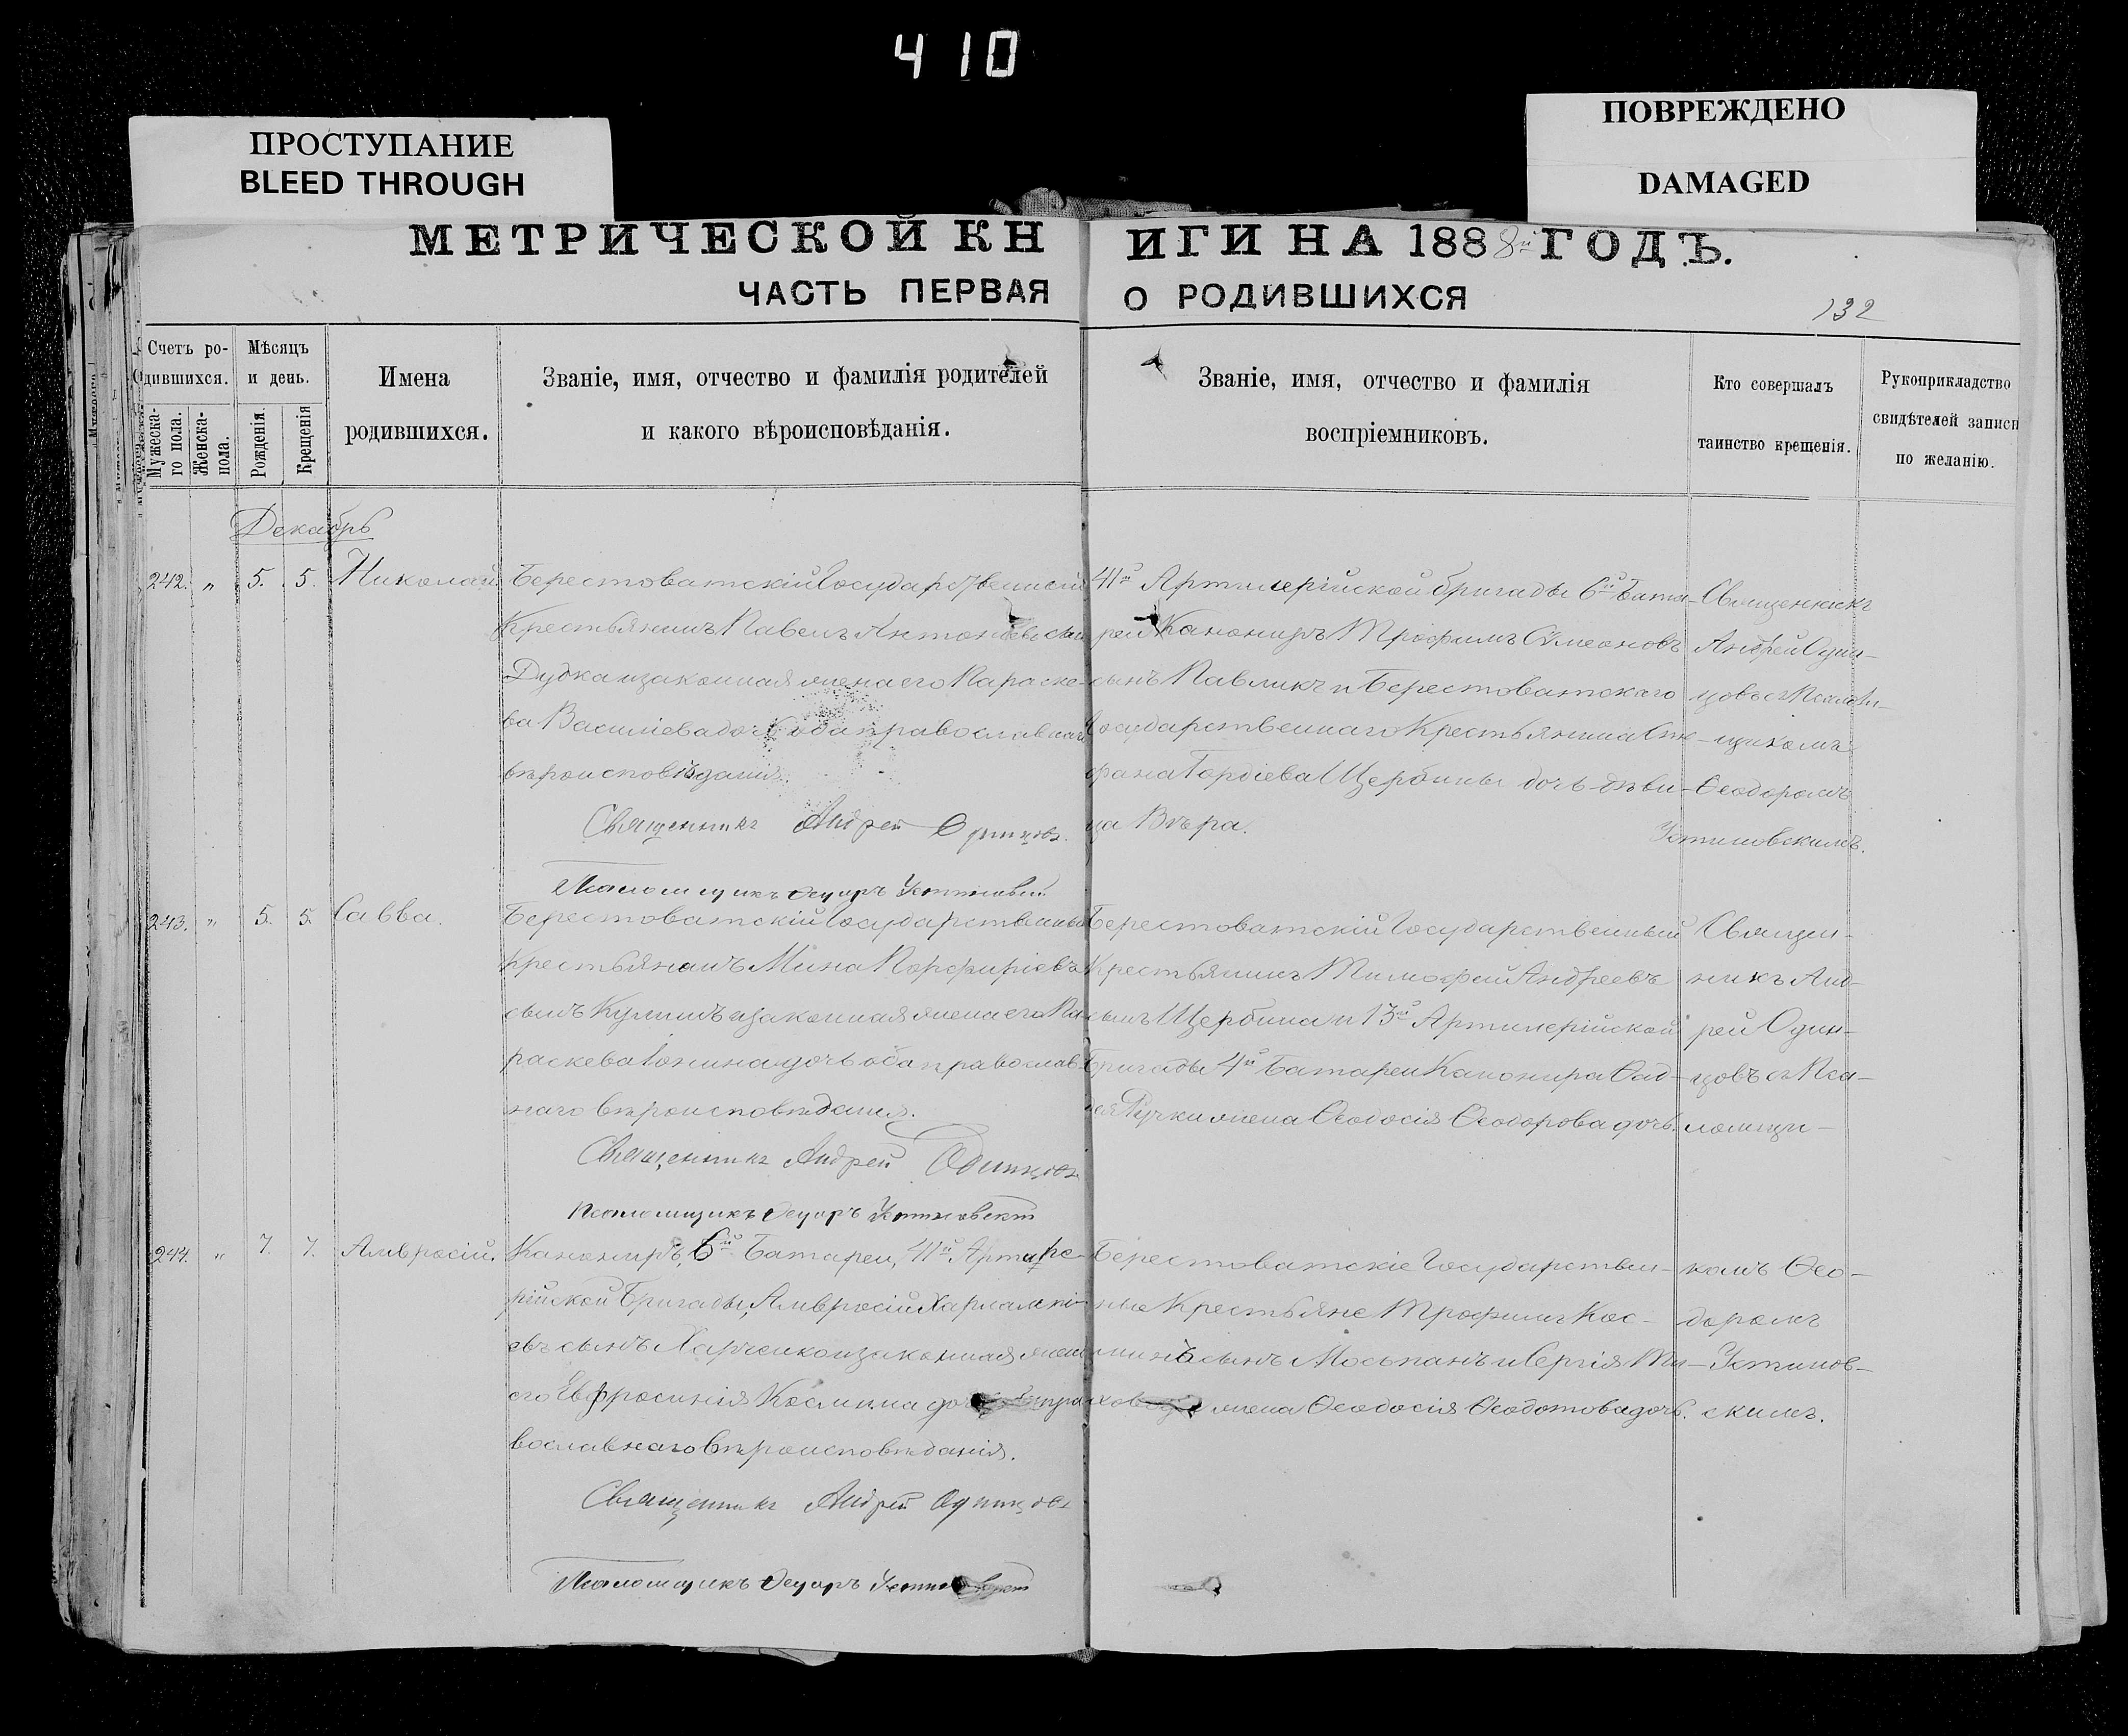 410
ПРОСТУПАНИЕ
BLEED THROUGH
ПОВРЕЖДЕНО
DAMAGED
МЕТРИЧЕСКОЙ КН
ИГИ НА 1888й ГОДЪ.
ЧАСТЬ ПЕРВАЯ
О РОДИВШИХСЯ
132
Счетъ ро-
дившихся.
Мужеска-
го пола.
Женска-
пола.
Мѣсяцъ
и день.
Рожденія.
Крещенія
Имена
родившихся.
Званіе, имя, отчество и фамилія родителей
и какого вѣроисповѣданія.
Званіе, имя, отчество и фамилія
воспріемниковъ.
Кто совершалъ
таинство крещенія.
Рукоприкладство
свидѣтелей записи
по желанію.
Декабрь
242. " 5. 5. Николай
Берестоватскій Государственный
Крестьянинъ Павелъ Антоніевъ сынъ
Дудка и законная жена его Параске-
ва Василіева дочь оба православнаго
вѣроисповѣданія.
Священникъ Андрей Одинцовъ.
Псаломщикъ Ѳедоръ Устиновскій
41й Артилерійской бригады 6й Бата-
реи Канониръ Трофимъ Сѵмеоновъ
сынъ Павликъ и Берестоватскаго
Государственнаго Крестьянина Сте-
фана Гордіева Щербины дочь дѣви-
ца Вѣра.
Священникъ
Андрей Один-
цовъ съ Псалом-
щикомъ
Ѳеодоромъ
Устиновскимъ.
243. " 5. 5. Савва.
Берестоватскій Государственный
Крестьянинъ Мина Порфиріевъ
сынъ Кулишъ и законная жена его Па-
раскева Іонина дочь оба православ-
наго вѣроисповѣданія.
Священникъ Андрей Одинцовъ
Псаломщикъ Ѳедоръ Устиновскій
Берестоватскій Государственный
Крестьянинъ Тимофей Андреевъ
сынъ Щербина и 13й Артилерійской
Бригады 4й Батареи Канонира Ѳад-
дея Ручки жена Ѳеодосія Ѳеодорова дочь.
Священ-
никъ Анд-
рей Один-
цовъ съ Пса-
ломщи-
244. " 7. 7. Амвросій.
Канониръ, 6й Батареи, 41й Артиле-
рійской Бригады, Амвросій Харлампі-
евъ сынъ Харченко и законная жена
его Евфросинія Космина дочь пра
вославнаго вѣроисповѣданія.
Священникъ Андрей Одинцовъ
Псаломщикъ Ѳедоръ Устиновскій
Берестоватскіе Государствен-
ные Крестьяне Трофимъ Кос-
минъ сынъ Моспанъ и Сергія
жена Ѳеодосія Ѳеодотова дочь.
комъ Ѳео-
доромъ
Устинов-
скимъ.